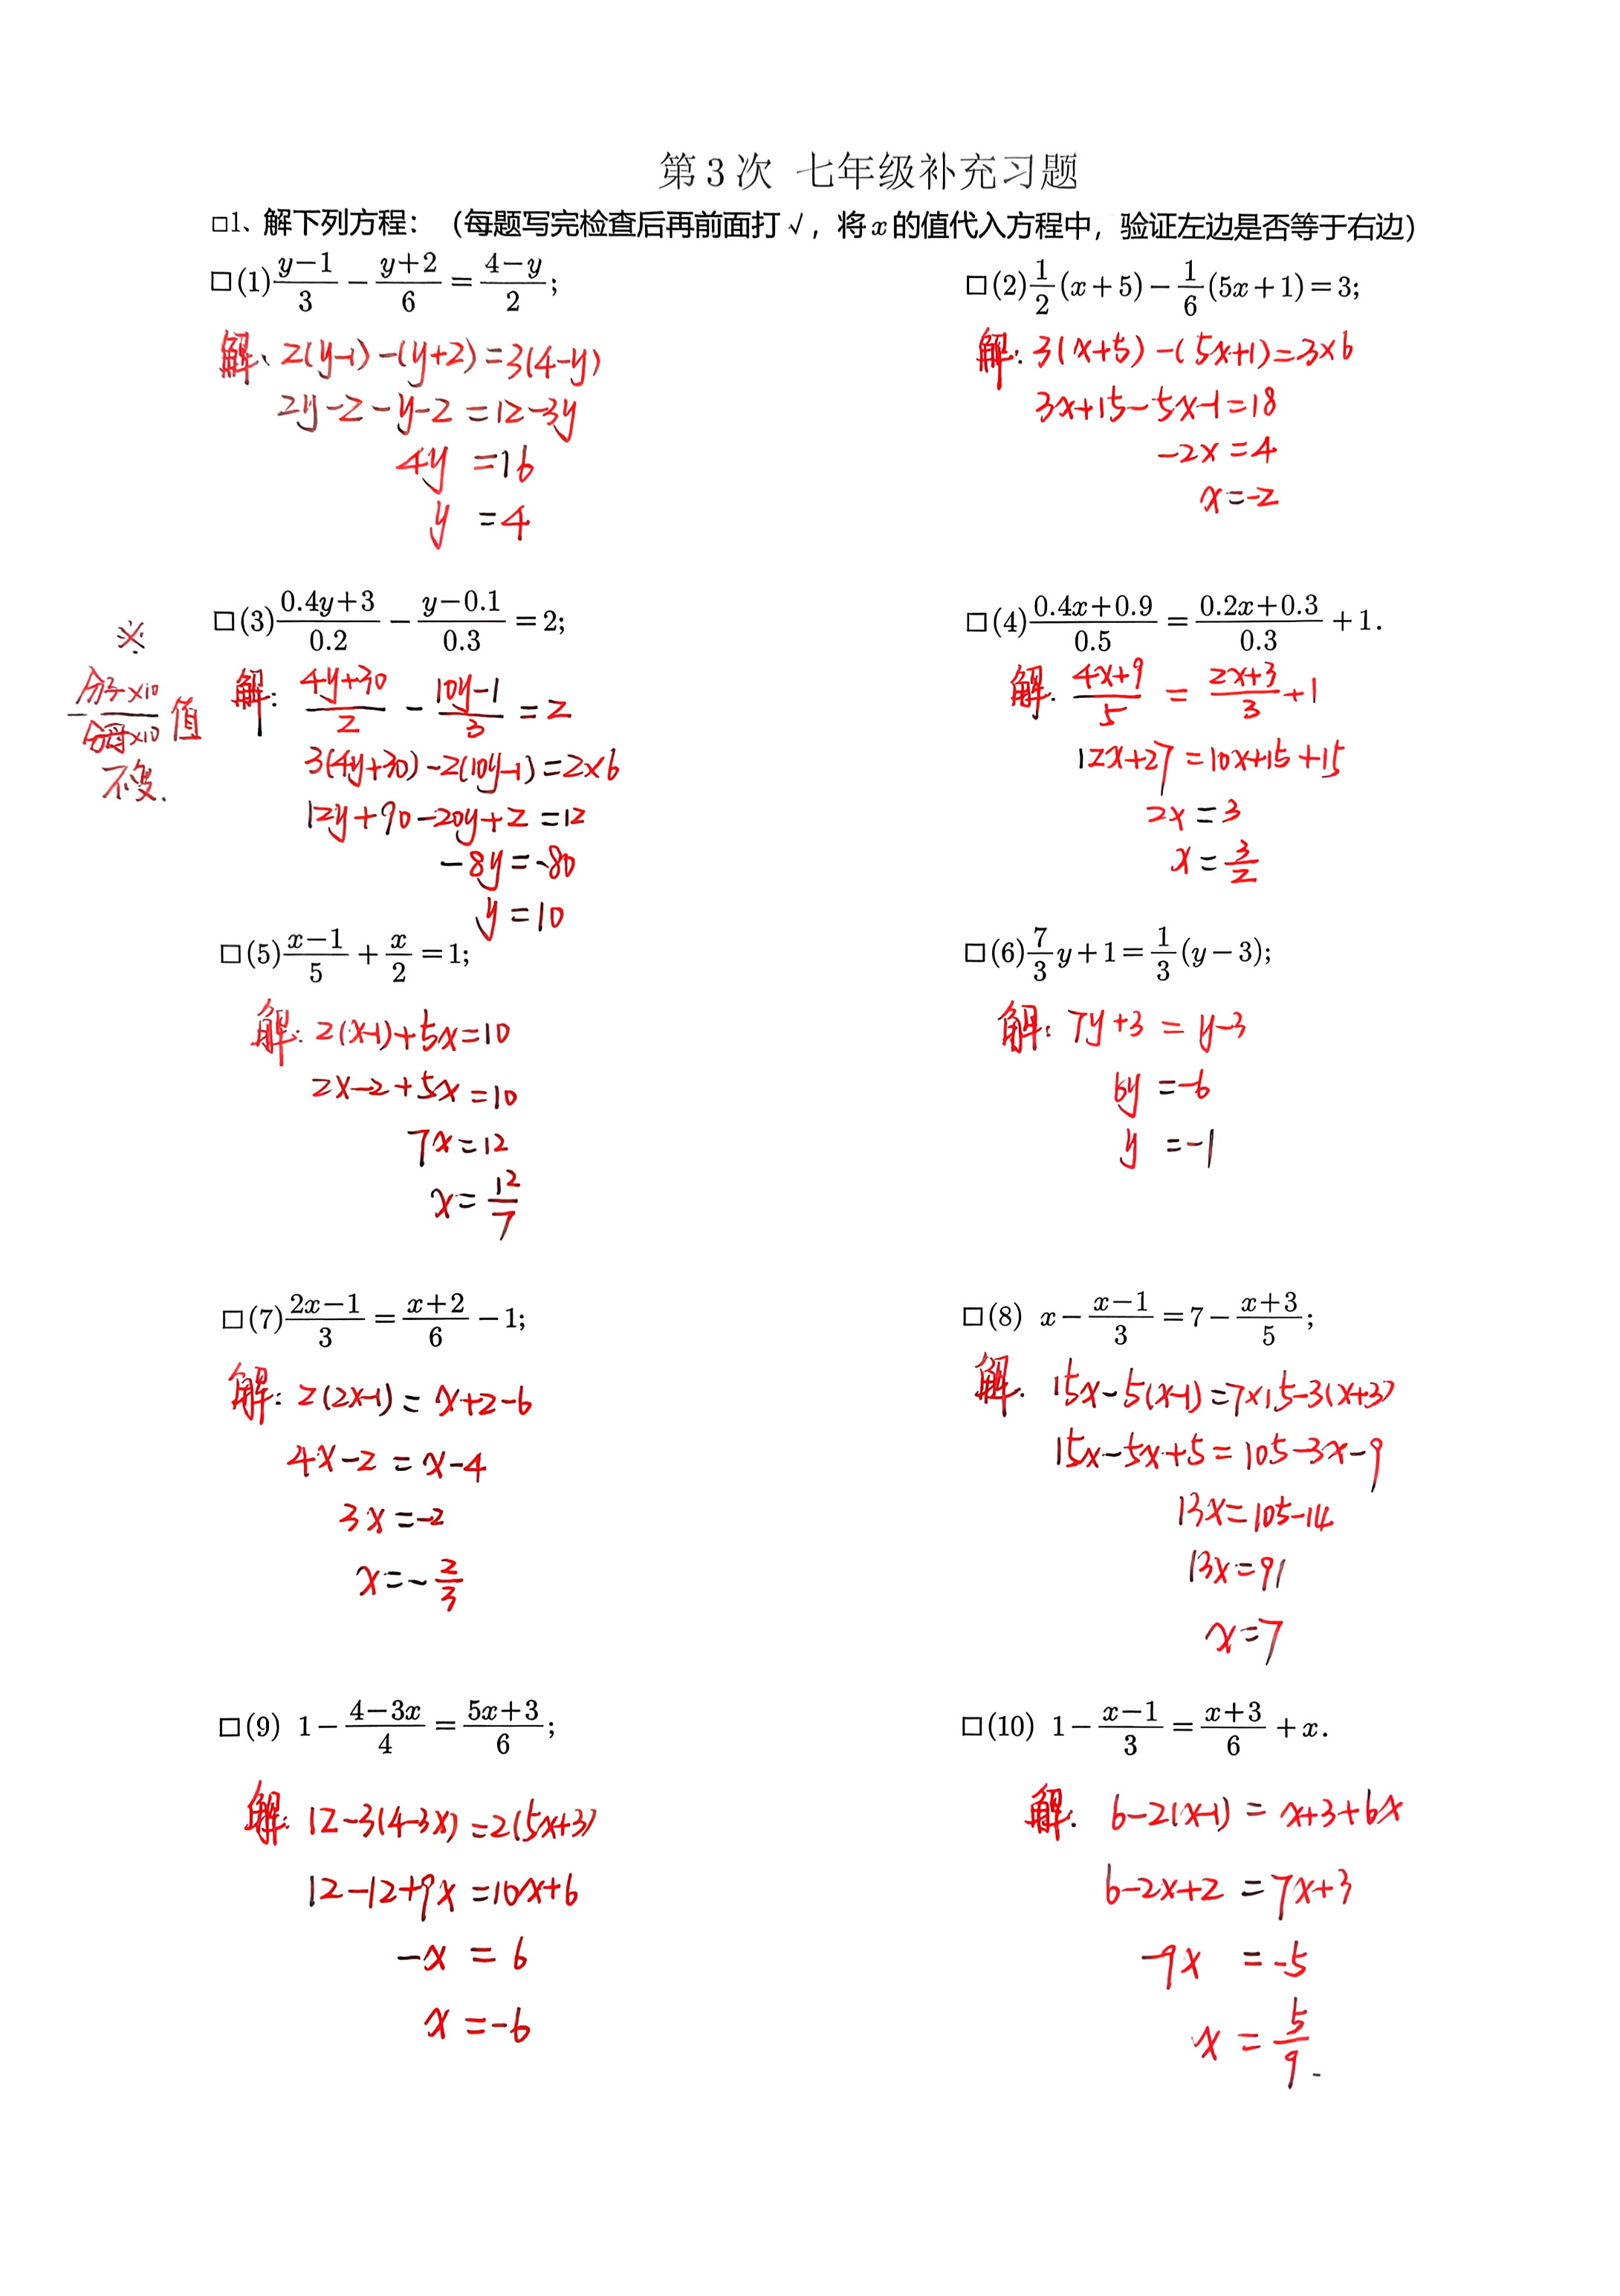 第3次 七年级补充习题
□1、解下列方程：（每题写完检查后再前面打√，将x的值代入方程中，验证左边是否等于右边）
□(1) (y−1)/3 − (y+2)/6 = (4−y)/2;
解、2(y−1)−(y+2)=3(4−y)
2y−2−y−2=12−3y
4y=16
y=4
□(2) 1/2(x+5)−1/6(5x+1)=3;
解：3(x+5)−(5x+1)=3×6
3x+15−5x−1=18
−2x=4
x=−2
※
分子×10/分母×10 值
不变.
□(3) (0.4y+3)/0.2 − (y−0.1)/0.3 = 2;
解：(4y+30)/2 − (10y−1)/3 = 2
3(4y+30)−2(10y−1)=2×6
12y+90−20y+2=12
−8y=−80
y=10
□(4) (0.4x+0.9)/0.5 = (0.2x+0.3)/0.3 + 1.
解. (4x+9)/5 = (2x+3)/3 + 1
12x+27=10x+15+15
2x=3
x=3/2
□(5) (x−1)/5 + x/2 = 1;
解：2(x−1)+5x=10
2x−2+5x=10
7x=12
x=12/7
□(6) 7/3y+1=1/3(y−3);
解：7y+3=y−3
6y=−6
y=−1
□(7) (2x−1)/3 = (x+2)/6 − 1;
解：2(2x−1)=x+2−6
4x−2=x−4
3x=−2
x=−2/3
□(8) x − (x−1)/3 = 7 − (x+3)/5;
解. 15x−5(x−1)=7×15−3(x+3)
15x−5x+5=105−3x−9
13x=105−14
13x=91
x=7
□(9) 1 − (4−3x)/4 = (5x+3)/6;
解：12−3(4−3x)=2(5x+3)
12−12+9x=10x+6
−x=6
x=−6
□(10) 1 − (x−1)/3 = (x+3)/6 + x.
解：6−2(x−1)=x+3+6x
6−2x+2=7x+3
−9x=−5
x=5/9.